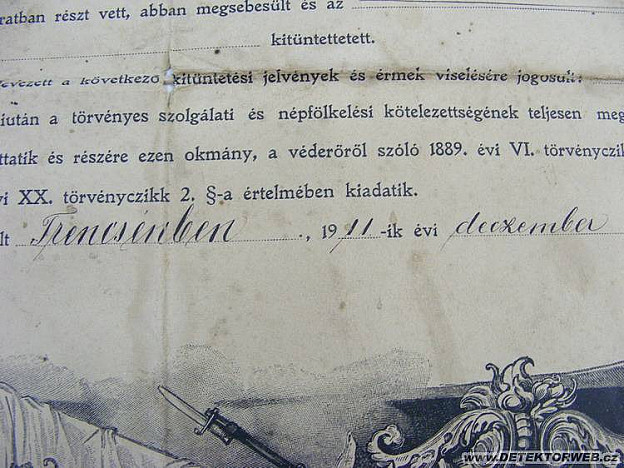 ratban részt vett, abban megsebesült és az
kitüntettetett.
evezett a következő kitüntetési jelvények és érmek viselésére jogosult:
iután a törvényes szolgálati és népfölkelési kötelezettségének teljesen meg
ttatik és részére ezen okmány, a véderőről szóló 1889. évi VI. törvényczik
vi XX. törvényczikk 2. §-a értelmében kiadatik.
lt Trencsénben, 1911-ik évi deczember
WWW.DETEKTORWEB.cz